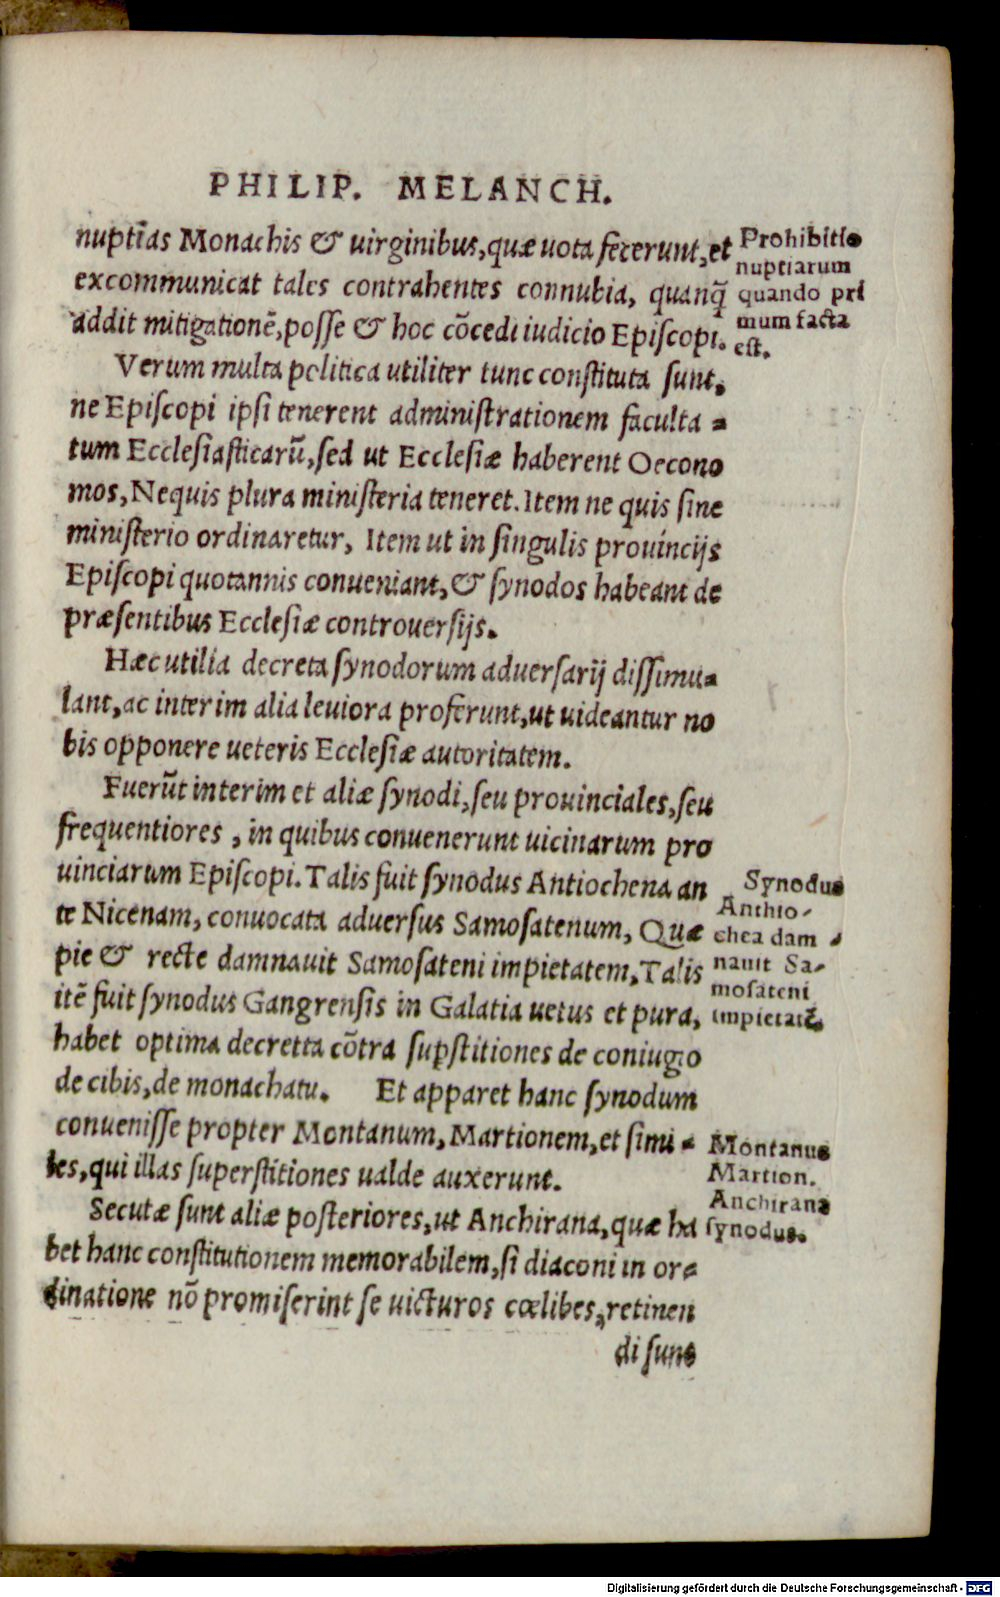 PHILIP. MELANCH.
nuptĩas Monachis & uirginibus, quæ uota fecerunt, et
excommunicat tales contrahentes connubia, quanq̃
addit mitigationẽ, posse & hoc cõcedi iudicio Episcopi.
Verum multa politica utiliter tunc constituta sunt,
ne Episcopi ipsi tenerent administrationem faculta=
tum Ecclesiasticarũ, sed ut Ecclesiæ haberent Oecono
mos, Nequis plura ministeria teneret. Item ne quis sine
ministerio ordinaretur, Item ut in singulis prouincijs
Episcopi quotannis conueniant, & synodos habeant de
præsentibus Ecclesiæ controuersijs.
Hæc utilia decreta synodorum aduersarij dissimu=
lant, ac interim alia leuiora proferunt, ut uideantur no
bis opponere ueteris Ecclesiæ autoritatem.
Fuerũt interim et aliæ synodi, seu prouinciales, seu
frequentiores, in quibus conuenerunt uicinarum pro
uinciarum Episcopi. Talis fuit synodus Antiochena an
te Nicenam, conuocata aduersus Samosatenum, Quæ
pie & recte damnauit Samosateni impietatem, Talis
itẽ fuit synodus Gangrensis in Galatia uetus et pura,
habet optima decretta cõtra supstitiones de coniugio
de cibis, de monachatu. Et apparet hanc synodum
conuenisse propter Montanum, Martionem, et simi=
les, qui illas superstitiones ualde auxerunt.
Secutæ sunt aliæ posteriores, ut Anchirana, quæ ha
bet hanc constitutionem memorabilem, si diaconi in or=
dinatione nõ promiserint se uicturos cœlibes, retinen
di sunt
Prohibitio
nuptiarum
quando pri
mum facta
est.
Synodus
Anthio-
chea dam-
nauit Sa-
mosateni
impietatẽ
Montanus
Martion.
Anchirana
synodus.
Digitalisierung gefördert durch die Deutsche Forschungsgemeinschaft - DFG